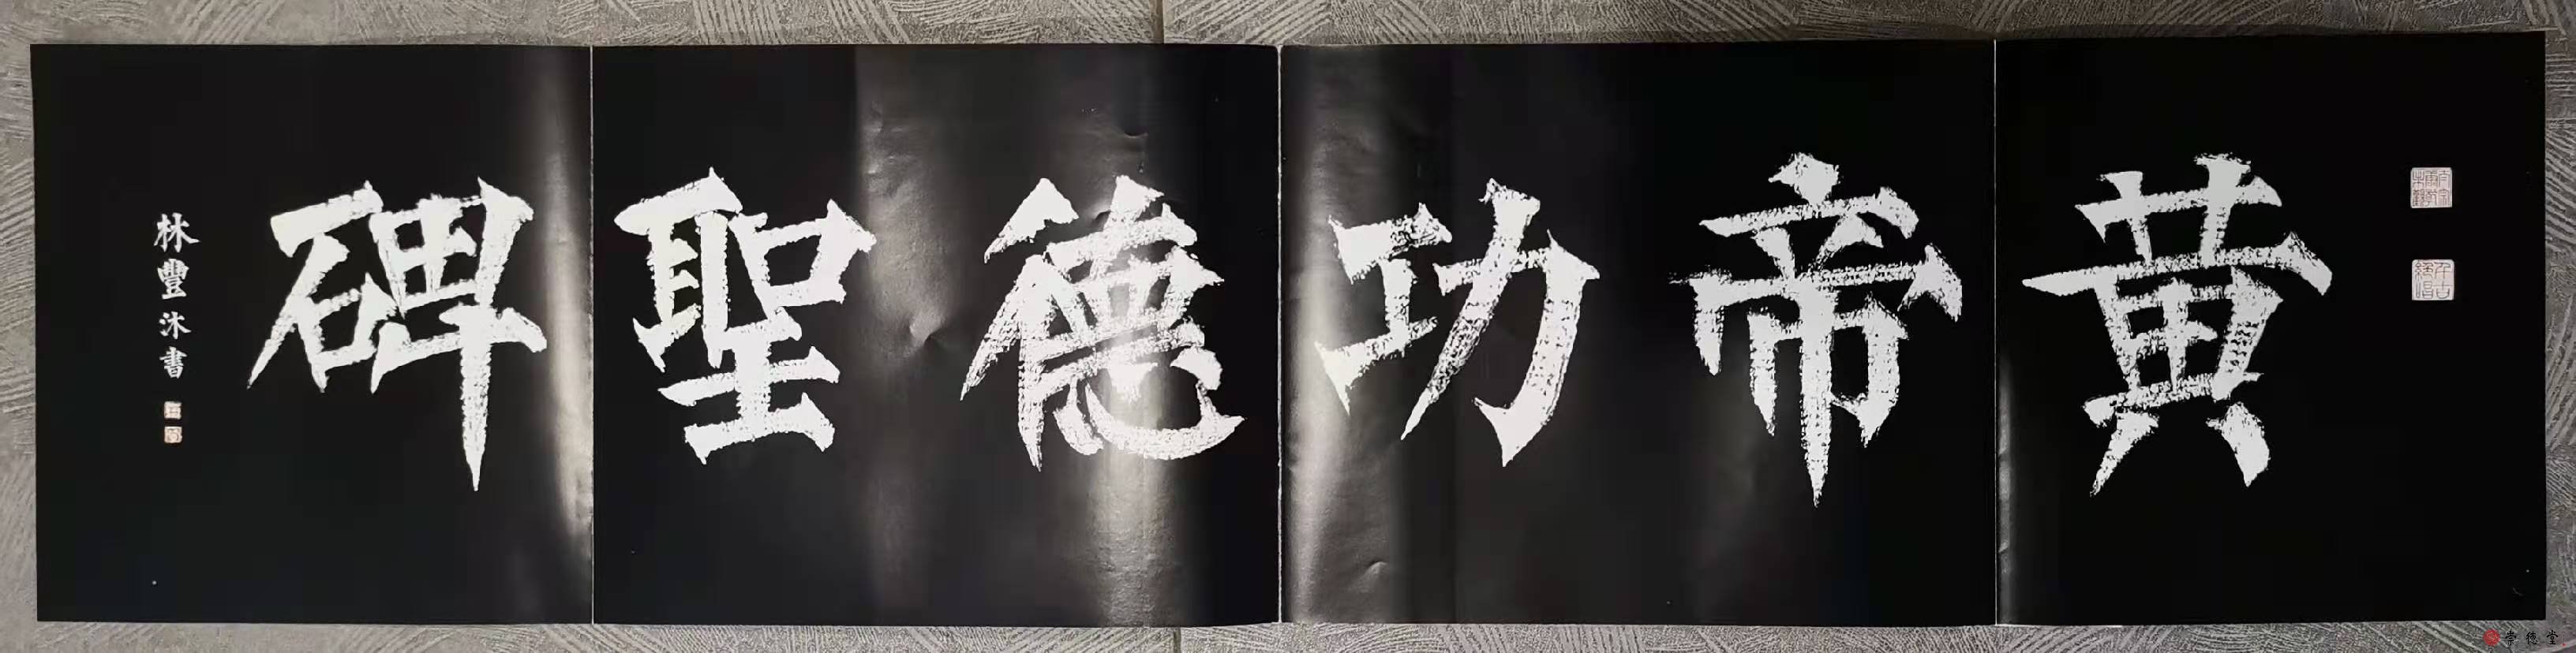 黄帝功德聖碑
林豐沐書
崇德堂